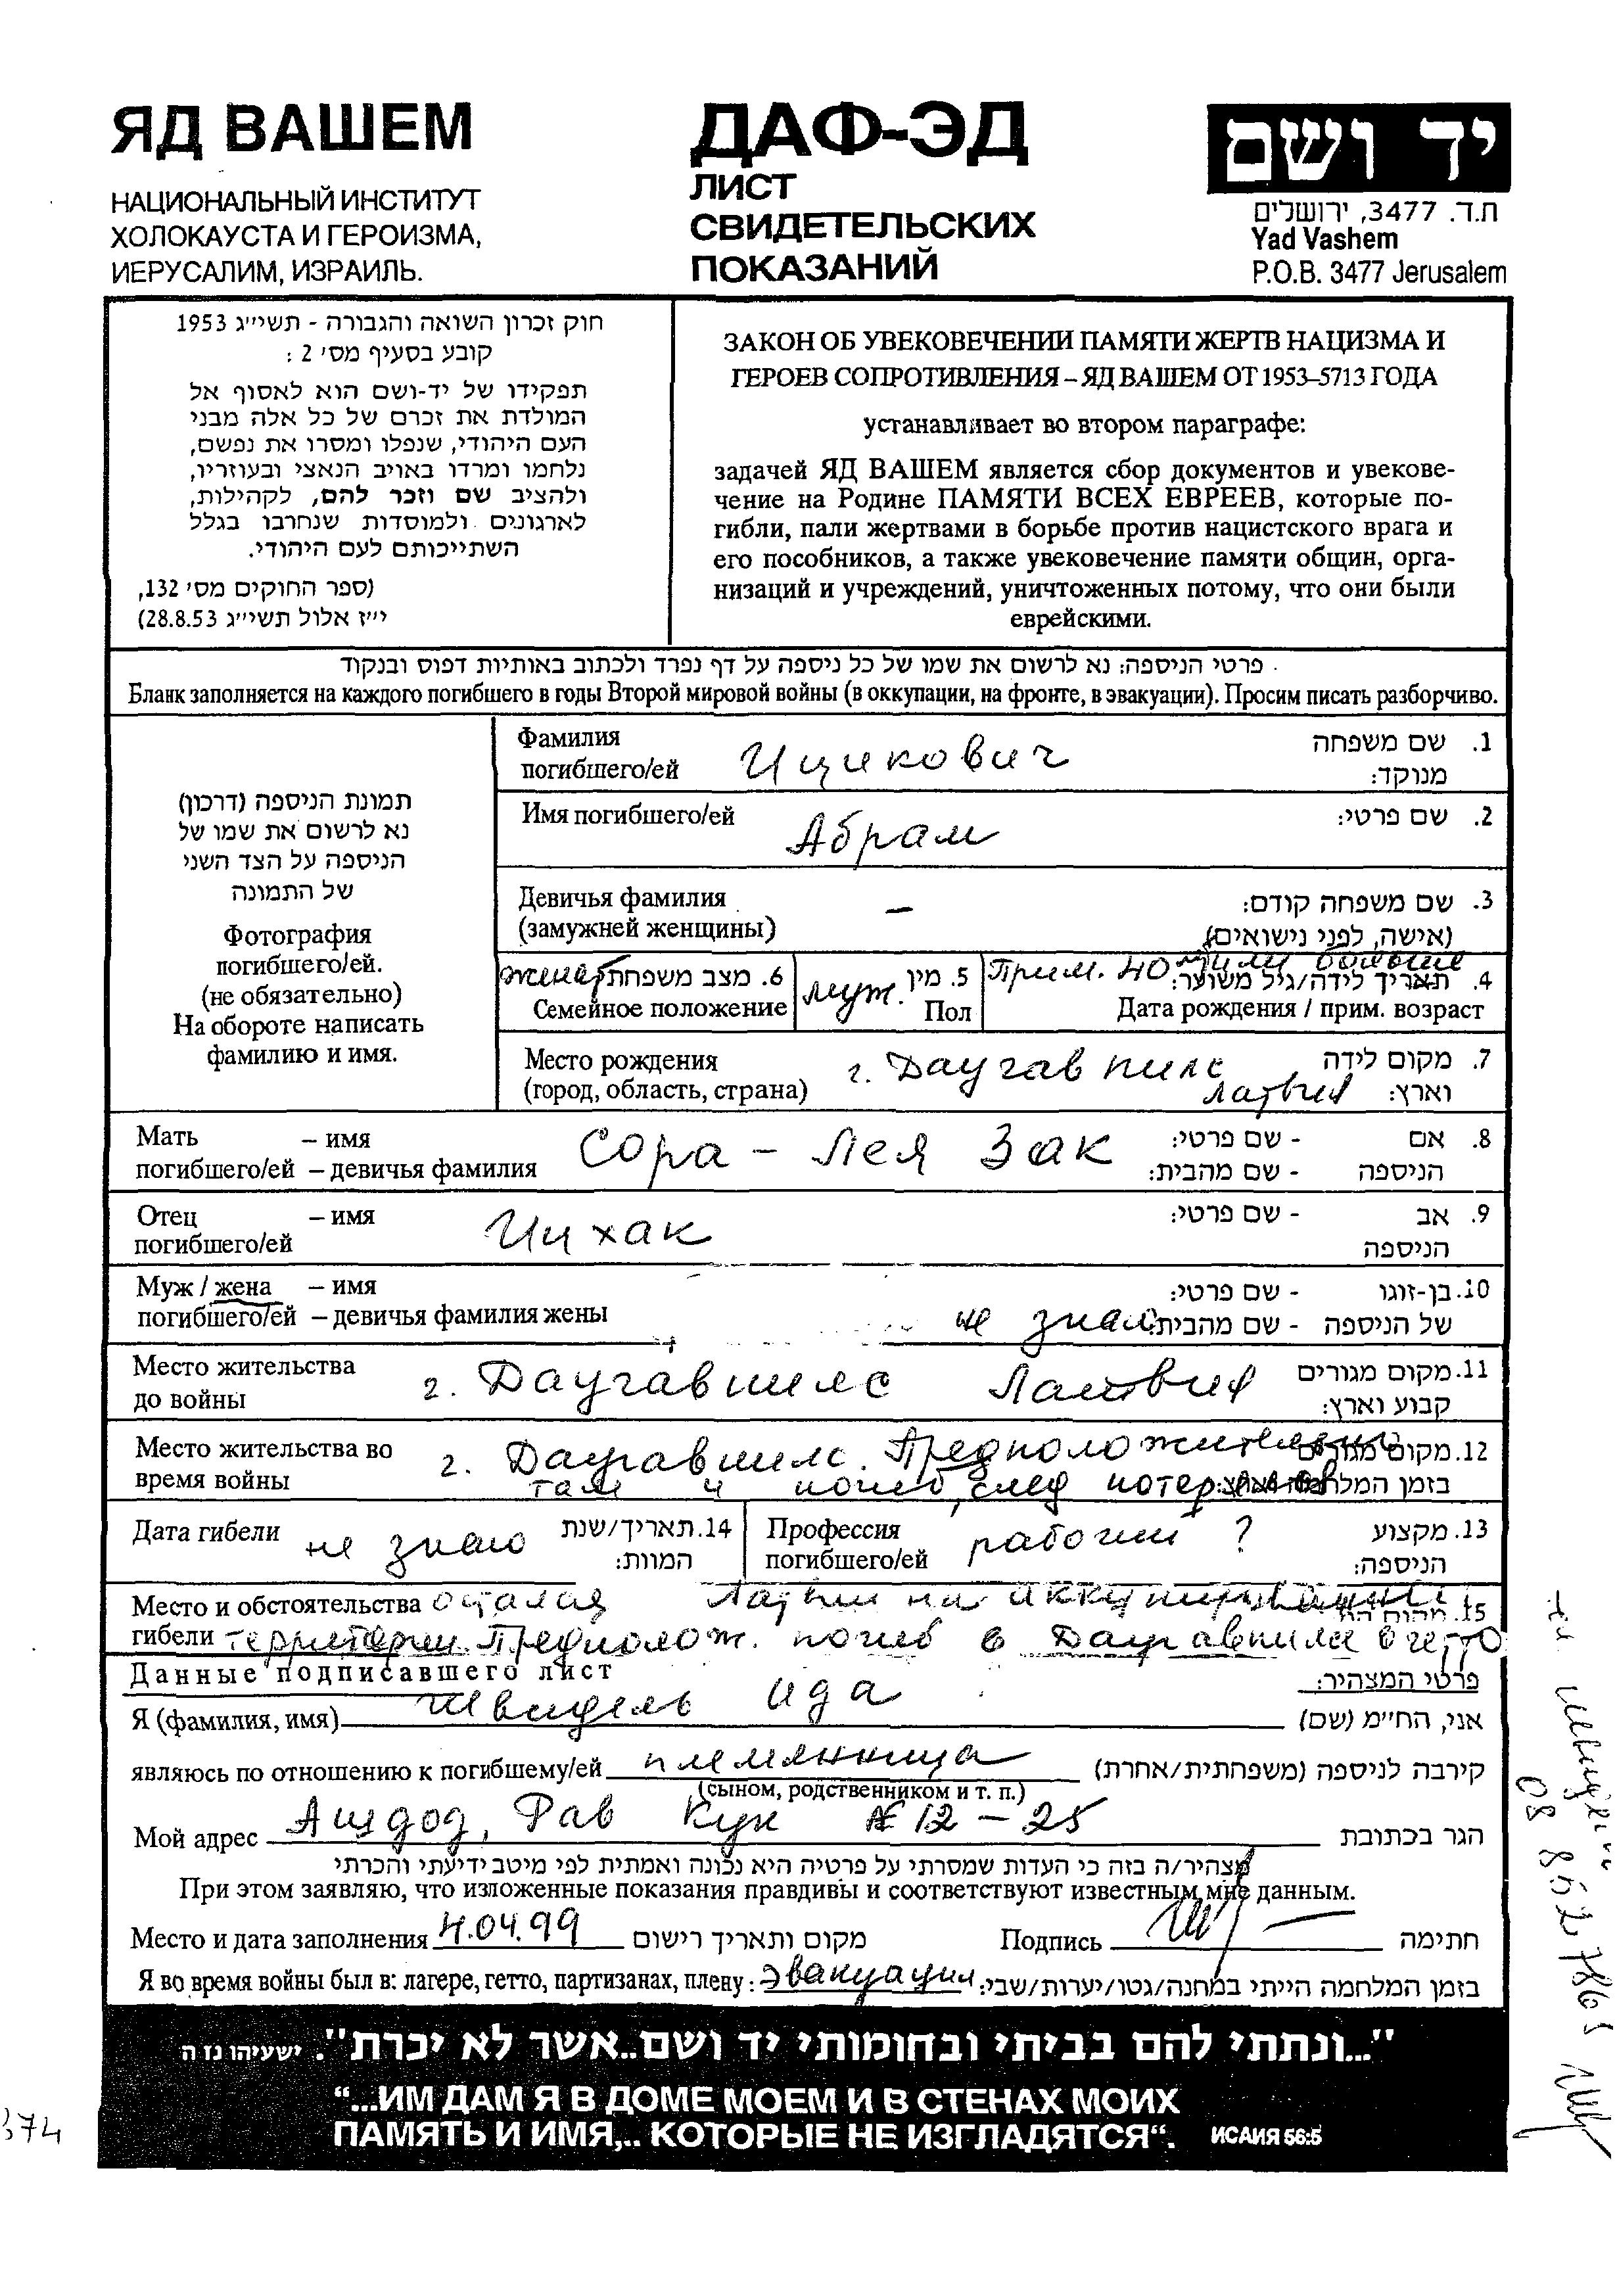 ЯД ВАШЕМ
НАЦИОНАЛЬНЫЙ ИНСТИТУТ
ХОЛОКАУСТА И ГЕРОИЗМА,
ИЕРУСАЛИМ, ИЗРАИЛЬ.
ДАФ-ЭД
ЛИСТ
СВИДЕТЕЛЬСКИХ
ПОКАЗАНИЙ
יד ושם
ת.ד. 3477, ירושלים
Yad Vashem
P.O.B. 3477 Jerusalem
חוק זכרון השואה והגבורה - תשי״ג 1953
קובע בסעיף מס׳ 2 :
תפקידו של יד-ושם הוא לאסוף אל
המולדת את זכרם של כל אלה מבני
העם היהודי, שנפלו ומסרו את נפשם,
נלחמו ומרדו באויב הנאצי ובעוזריו,
ולהציב שם וזכר להם, לקהילות,
לארגונים ולמוסדות שנחרבו בגלל
השתייכותם לעם היהודי.
(ספר החוקים מס׳ 132,
י״ז אלול תשי״ג 28.8.53)
ЗАКОН ОБ УВЕКОВЕЧЕНИИ ПАМЯТИ ЖЕРТВ НАЦИЗМА И
ГЕРОЕВ СОПРОТИВЛЕНИЯ – ЯД ВАШЕМ ОТ 1953–5713 ГОДА
устанавливает во втором параграфе:
задачей ЯД ВАШЕМ является сбор документов и увекове-
чение на Родине ПАМЯТИ ВСЕХ ЕВРЕЕВ, которые по-
гибли, пали жертвами в борьбе против нацистского врага и
его пособников, а также увековечение памяти общин, орга-
низаций и учреждений, уничтоженных потому, что они были
еврейскими.
פרטי הניספה: נא לרשום את שמו של כל ניספה על דף נפרד ולכתוב באותיות דפוס ובנקוד
Бланк заполняется на каждого погибшего в годы Второй мировой войны (в оккупации, на фронте, в эвакуации). Просим писать разборчиво.
תמונת הניספה (דרכון)
נא לרשום את שמו של
הניספה על הצד השני
של התמונה
Фотография
погибшего/ей.
(не обязательно)
На обороте написать
фамилию и имя.
Фамилия Ицикович 1. שם משפחה
погибшего/ей מנוקד:
Имя погибшего/ей Абрам 2. שם פרטי:
Девичья фамилия – 3. שם משפחה קודם:
(замужней женщины) (אישה, לפני נישואים)
женат 6. מצב משפחתי
Семейное положение
муж. 5. מין
Пол
Прим. 40 или больше
4. תאריך לידה/גיל משוער:
Дата рождения / прим. возраст
Место рождения г. Даугавпилс 7. מקום לידה
(город, область, страна) Латвия וארץ:
Мать – имя Сора - Лея Зак 8. אם - שם פרטי:
погибшего/ей – девичья фамилия הניספה - שם מהבית:
Отец – имя Ицхак 9. אב - שם פרטי:
погибшего/ей הניספה
Муж / жена – имя 10. בן-זוגו - שם פרטי:
погибшего/ей – девичья фамилия жены не знаю של הניספה - שם מהבית:
Место жительства г. Даугавпилс Латвия 11. מקום מגורים
до войны קבוע וארץ:
Место жительства во г. Даугавпилс. Предположительно 12. מקום מגורים
время войны там и погиб, след потерялся בזמן המלחמה וארץ:
Дата гибели не знаю 14. תאריך/שנת
המוות:
Профессия рабочий ? 13. מקצוע
погибшего/ей הניספה:
Место и обстоятельства остался Латвии на аккупированной 15. מקום
гибели территории. Предполож. погиб в Даугавпилсе в гетто
Данные подписавшего лист פרטי המצהיר:
Я (фамилия, имя) Швидель Ида אני, הח״מ (שם)
являюсь по отношению к погибшему/ей племянница קירבה לניספה (משפחתית/אחרת)
(сыном, родственником и т. п.)
Мой адрес Ашдод, Рав Кук № 12 – 25 הגר בכתובת
מצהיר/ה בזה כי העדות שמסרתי על פרטיה היא נכונה ואמתית לפי מיטב ידיעתי והכרתי
При этом заявляю, что изложенные показания правдивы и соответствуют известным мне данным.
Место и дата заполнения 4.04.99 מקום ותאריך רישום Подпись חתימה
Я во время войны был в: лагере, гетто, партизанах, плену: Эвакуация בזמן המלחמה הייתי במחנה/גטו/יערות/שבי:
"...ונתתי להם בביתי ובחומותי יד ושם..אשר לא יכרת". ישעיהו נז ה
“...ИМ ДАМ Я В ДОМЕ МОЕМ И В СТЕНАХ МОИХ
ПАМЯТЬ И ИМЯ,.. КОТОРЫЕ НЕ ИЗГЛАДЯТСЯ“. ИСАИЯ 56:5
374